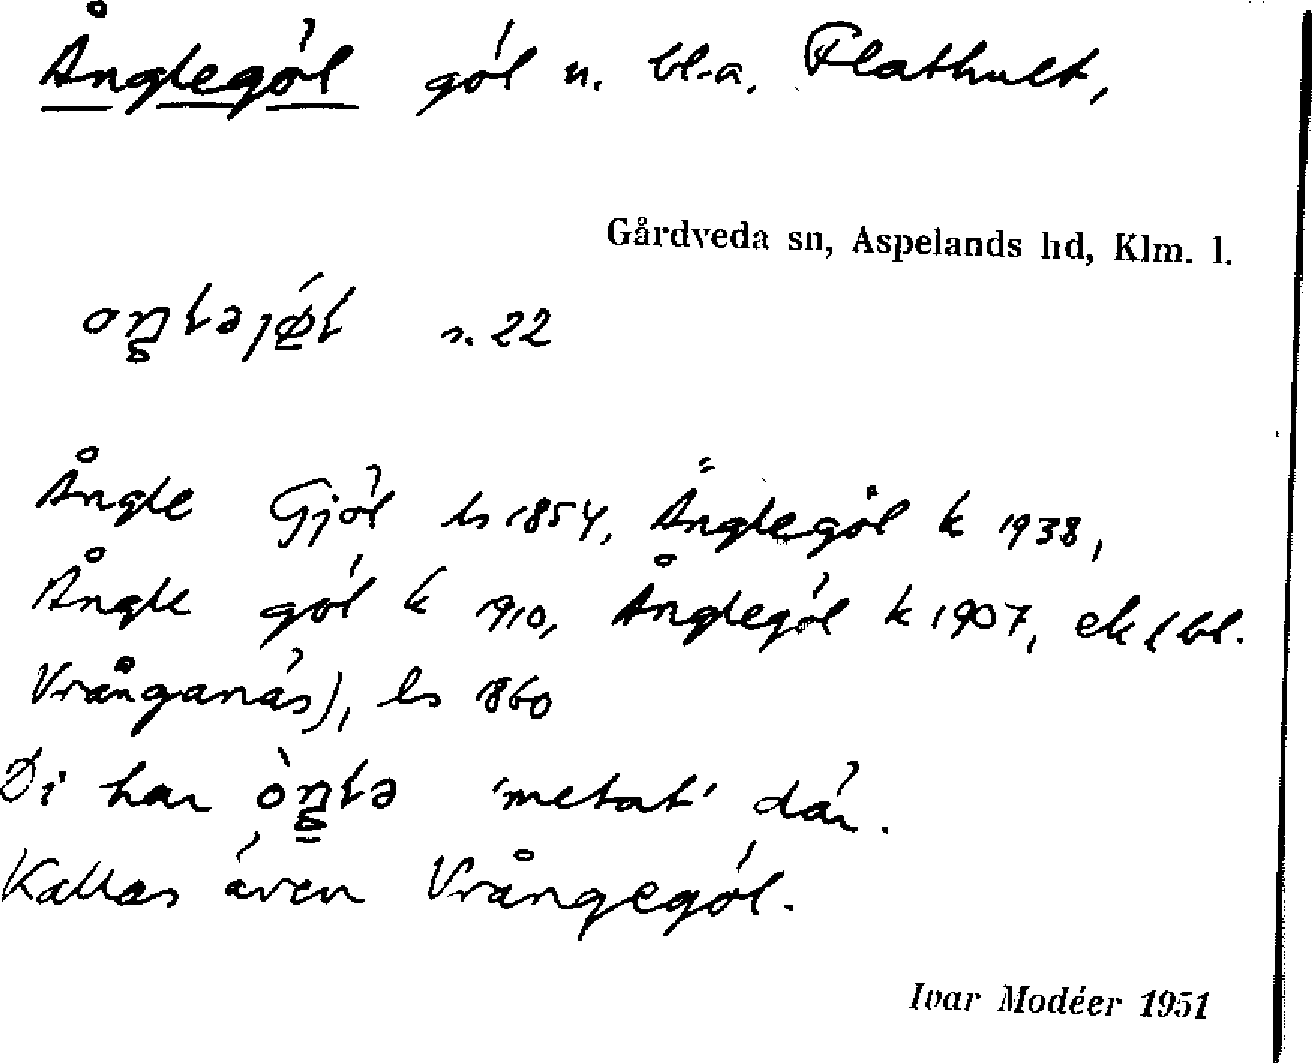 Änglegöl göl n. bl.a. Flathult,
Gårdveda sn, Aspelands hd, Klm. l.
n. 22
Ångle Gjöl ls 1854, Änglegöl k 1938,
Ångle göl k 1910, Ånglegöl k 1907, ek (bl.
Vrånganäs), ls 1860
Di har 'metat' där.
Kallas även Vrångegöl.
Ivar Modéer 1951